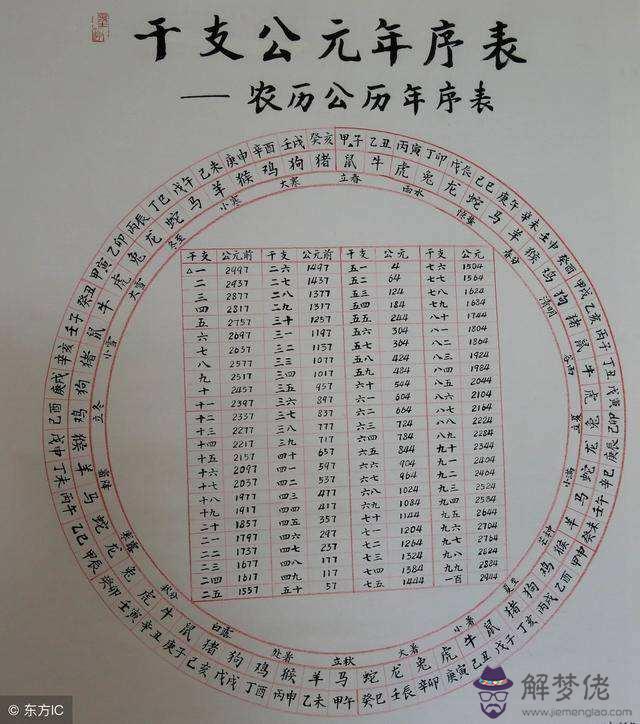 干支公元年序表
——农历公历年序表
甲子 乙丑 丙寅 丁卯 戊辰 己巳 庚午 辛未 壬申 癸酉 甲戌 乙亥 丙子 丁丑 戊寅 己卯 庚辰 辛巳 壬午 癸未 甲申 乙酉 丙戌 丁亥 戊子 己丑 庚寅 辛卯 壬辰 癸巳 甲午 乙未 丙申 丁酉 戊戌 己亥 庚子 辛丑 壬寅 癸卯 甲辰 乙巳 丙午 丁未 戊申 己酉 庚戌 辛亥 壬子 癸丑 甲寅 乙卯 丙辰 丁巳 戊午 己未 庚申 辛酉 壬戌 癸亥
鼠 牛 虎 兔 龙 蛇 马 羊 猴 鸡 狗 猪 鼠 牛 虎 兔 龙 蛇 马 羊 猴 鸡 狗 猪 鼠 牛 虎 兔 龙 蛇 马 羊 猴 鸡 狗 猪 鼠 牛 虎 兔 龙 蛇 马 羊 猴 鸡 狗 猪 鼠 牛 虎 兔 龙 蛇 马 羊 猴 鸡 狗 猪
立春 雨水 惊蛰 春分 清明 谷雨 立夏 小满 芒种 夏至 小暑 大暑 立秋 处暑 白露 秋分 寒露 霜降 立冬 小雪 大雪 冬至 小寒 大寒
干支 公元前 干支 公元前 干支 公元 干支 公元
△一 2997 二六 1497 五一 4 七六 1504
二 2937 二七 1437 五二 64 七七 1564
三 2877 二八 1377 五三 124 七八 1624
四 2817 二九 1317 五四 184 七九 1684
五 2757 三十 1257 五五 244 八十 1744
六 2697 三一 1197 五六 304 八一 1804
七 2637 三二 1137 五七 364 八二 1864
八 2577 三三 1077 五八 424 八三 1924
九 2517 三四 1017 五九 484 八四 1984
十 2457 三五 957 六十 544 八五 2044
十一 2397 三六 897 六一 604 八六 2104
十二 2337 三七 837 六二 664 八七 2164
十三 2277 三八 777 六三 724 八八 2224
十四 2217 三九 717 六四 784 八九 2284
十五 2157 四十 657 六五 844 九十 2344
十六 2097 四一 597 六六 904 九一 2404
十七 2037 四二 537 六七 964 九二 2464
十八 1977 四三 477 六八 1024 九三 2524
十九 1917 四四 417 六九 1084 九四 2584
二十 1857 四五 357 七十 1144 九五 2644
二一 1797 四六 297 七一 1204 九六 2704
二二 1737 四七 237 七二 1264 九七 2764
二三 1677 四八 177 七三 1324 九八 2824
二四 1617 四九 117 七四 1384 九九 2884
二五 1557 五十 57 七五 1444 一百 2944
东方IC
解梦佬
www.jiemenglao.com